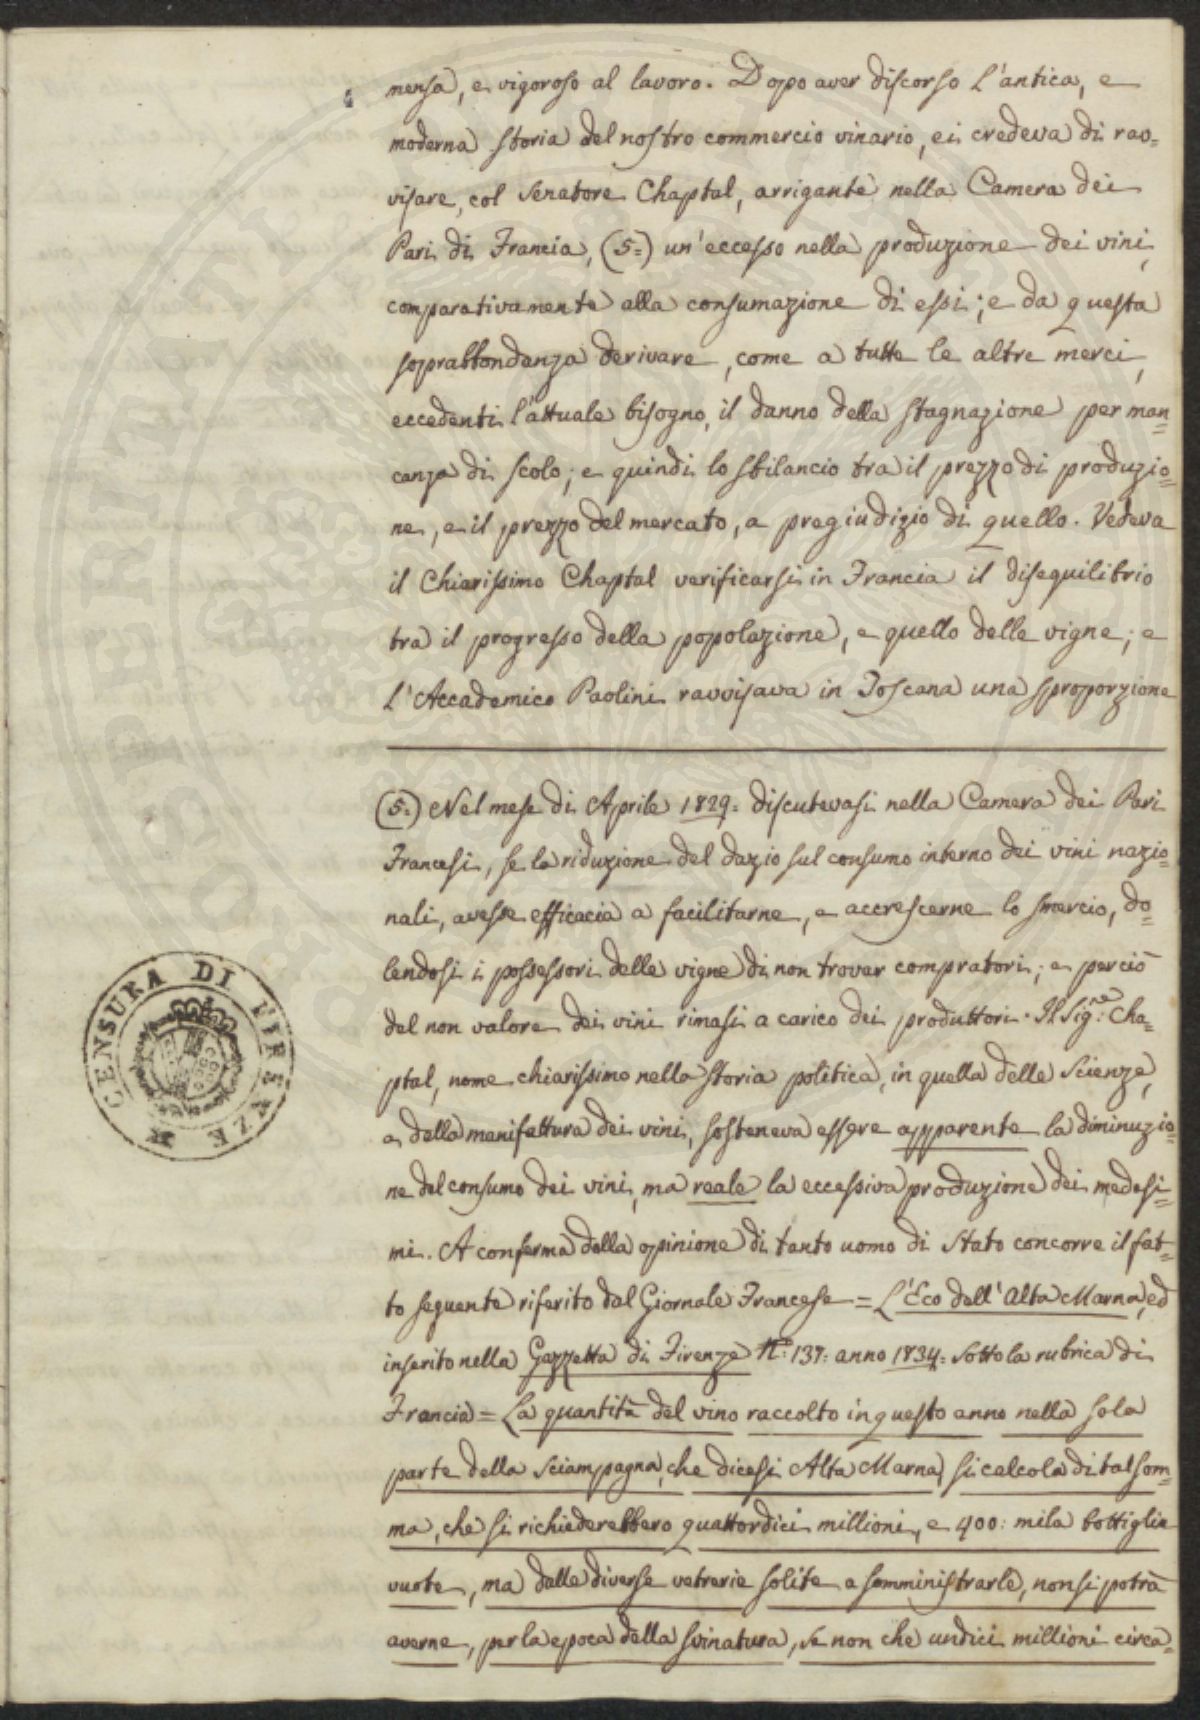 mensa, e vigoroso al lavoro. Dopo aver discorso l'antica, e
moderna storia del nostro commercio vinario, ei credeva di rav=
visare, col Senatore Chaptal, arrigante nella Camera dei
Pari di Francia, (5=) un'eccesso nella produzione dei vini,
comparativamente alla consumazione di essi; e da questa
soprabbondanza derivare, come a tutte le altre merci,
eccedenti l'attuale bisogno, il danno della stagnazione per man=
canza di scolo; e quindi lo sbilancio tra il prezzo di produzio=
ne, e il prezzo del mercato, a pregiudizio di quello. Vedeva
il Chiarissimo Chaptal verificarsi in Francia il disequilibrio
tra il progresso della popolazione, e quello delle vigne; e
l'Accademico Paolini ravvisava in Toscana una sproporzione
(5=) Nel mese di Aprile 1829= discutevasi nella Camera dei Pari
Francesi, se la riduzione del dazio sul consumo interno dei vini nazio=
nali, avesse efficacia a facilitarne, e accrescerne lo smercio, do=
lendosi i possessori delle vigne di non trovar compratori; e perciò
del non valore dei vini rimasi a carico dei produttori. Il Sig.re Cha=
ptal, nome chiarissimo nella storia politica, in quella delle Scienze,
e della manifattura dei vini, sosteneva essere apparente la diminuzio=
ne del consumo dei vini, ma reale la eccessiva produzione dei medesi=
mi. A conferma della opinione di tanto uomo di Stato concorre il fat=
to seguente riferito dal Giornale Francese = L'Eco dell'Alta Marna, ed
inserito nella Gazzetta di Firenze N.º 137: anno 1834= sotto la rubrica di
Francia = La quantità del vino raccolto in questo anno nella sola
parte della Sciampagna, che dicesi Alta Marna, si calcola di tal som=
ma, che si richiederebbero quattordici millioni, e 400: mila bottiglie
vuote, ma dalle diverse vetrerie solite a somministrarle, non si potrà
averne, per la epoca della svinatura, se non che undici millioni circa=
CENSURA DI FIRENZE